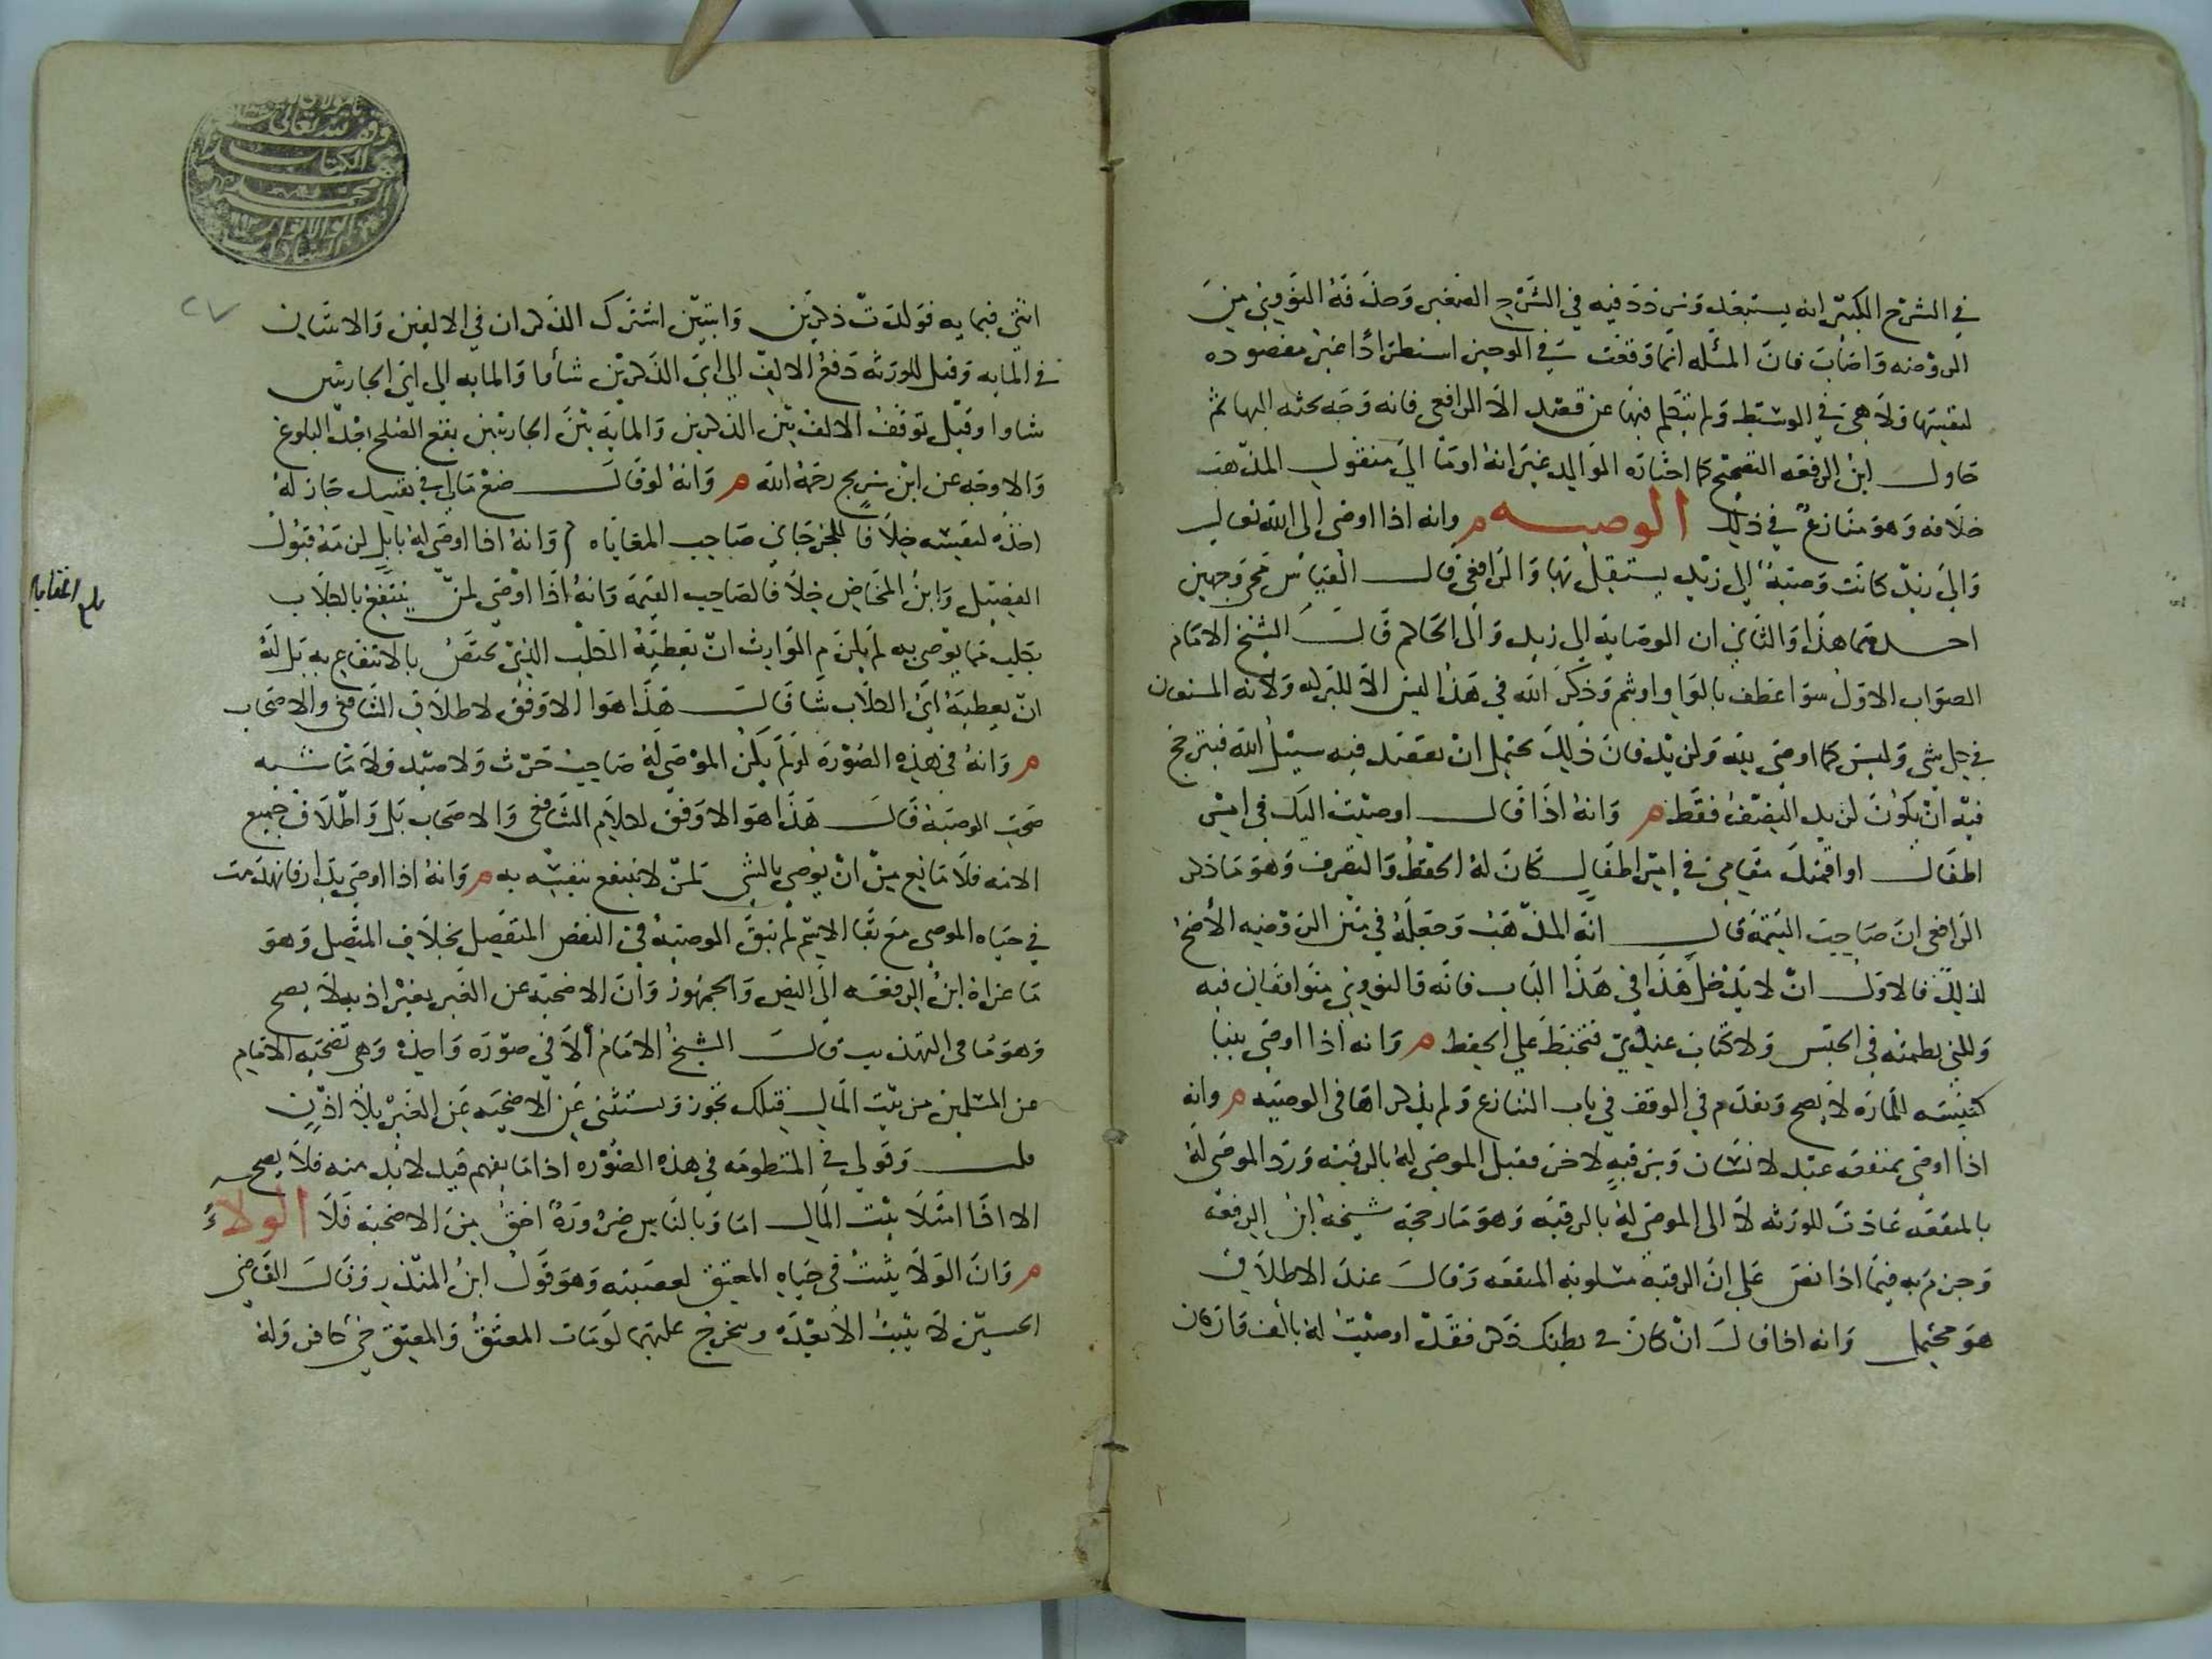 في الشرح الكبير انه يستبعد وتردد فيه في الشرح الصغير وحذفه النووي من
الروضه واصاب فان المسله انما وقعت في الوجيز استطرادا غير مقصوده
لنفسها ولا هي في الوسيط ولم يتكلم فيها عن قصد الا الرافعي فانه وجه بحثه اليها ثم
حاول ابن الرفعه التصحيح كما اختاره الوالد غير انه اومأ الى منقول المذهب
خلافه وهو منازع في ذلك الوصيه م وانه اذا اوصى الى الله تعالى
والى زيد كانت وصيه الى زيد يستقل بها والرافعي قال القياس مجي وجهين
احدهما هذا والثاني ان الوصايه الى زيد والى الحاكم قال الشيخ الامام
الصواب الاول سوا عطف بالواو او بثم وذكر الله في هذا ليس الا للتبرك ولانه المستعان
في كل شي وليس كما اوصى لله ولزيد فان ذلك يحتمل ان يقصد فيه سبيل الله فيترجح
فيه ان يكون لزيد النصف فقط م وانه اذا قال اوصيت اليك في امر
اطفالي او اقمتك مقامي في امر اطفالي كان له الحفظ والتصرف وهو ما ذكر
الرافعي ان صاحب التتمه قال انه المذهب وجعله في متن الروضه الاصح
لذلك فالاولى ان لا يدخل هذا في هذا الباب فانه والنووي متوافقان فيه
ولكني نظمته في الحبس ولا كتاب عندي فتحتط على الحفظ م وانه اذا اوصى ببنا
كنيسه للماره لا يصح وتقدم في الوقف في باب التنازع ولم يذكراها في الوصيه م وانه
اذا اوصى بمنفعه عبد لانسان وبرقبه لاخر فقبل الموصى له بالرقبه ورد الموصى له
بالمنفعه عادت للورثه لا الى الموصى له بالرقبه وهو ما رجحه شيخه ابن الرفعه
وجزم به فيما اذا نص على ان الرقبه مسلوبه المنفعه وقال عند الاطلاق
هو محتمل وانه اذا قال ان كان في بطنك ذكر فقد اوصيت له بالف وان كان
انثى فبمايه فولدت ذكرين وانثيين اشترك الذكران في الالفين والانثيان
في المايه وقيل للورثه دفع الالف الى اي الذكرين شاوا والمايه الى اي الجاريتين
شاوا وقيل توقف الالف بين الذكرين والمايه بين الجاريتين يقع الصلح بعد البلوغ
والاوجه عن ابن سريج رحمه الله م وانه لو قال ضع مالي في نفسك جاز له
اخذه لنفسه خلافا للجرجاني صاحب المعاياه م وانه اذا اوصى له بابل لزمه قبول
الفصيل وابن المخاض خلافا لصاحب التتمه وانه اذا اوصى لمن ينتفع بالكلاب
بكلب مما يوصى به لم يلزم الوارث ان يعطيه الكلب الذي يختص بالانتفاع به بل له
ان يعطيه اي الكلاب شا قال هذا هو الاوفق لاطلاق الشافعي والاصحاب
م وانه في هذه الصوره لو لم يكن الموصى له صاحب حرث ولا صيد ولا ماشيه
صحت الوصيه قال هذا هو الاوفق لكلام الشافعي والاصحاب بل واطلاق جميع
الايمه فلا مانع من ان يوصى بالشي لمن لا ينتفع بنفسه به م وانه اذا اوصى بدار فانهدمت
في حياه الموصي مع بقا الاسم لم تبق الوصيه في النقض المنفصل بخلاف المتصل وهو
ما عزاه ابن الرفعه الى النص والجمهور وان الاضحيه عن الغير بغير اذنه لا يصح
وهو ما في التهذيب قال الشيخ الامام الا في صوره واحده وهي تضحيه الامام
عن المسلمين من بيت المال فتلك تجوز وتستثنى عن الاضحيه عن الغير بلا اذن
قلت وقولي في المنظومه في هذه الصوره اذا ما يفهم قيد لا بد منه فلا يصح
الا اذا امتلا بيت المال اما وبالناس ضروره احق من الاضحيه فلا الولاء
م وان الولا يثبت في حياه المعتق لعصبته وهو قول ابن المنذر وقال القاضي
الحسين لا يثبت الا بعده ويتخرج عليهما لو مات المعتق والمعتق حي كافر وله
بلغ مقابله